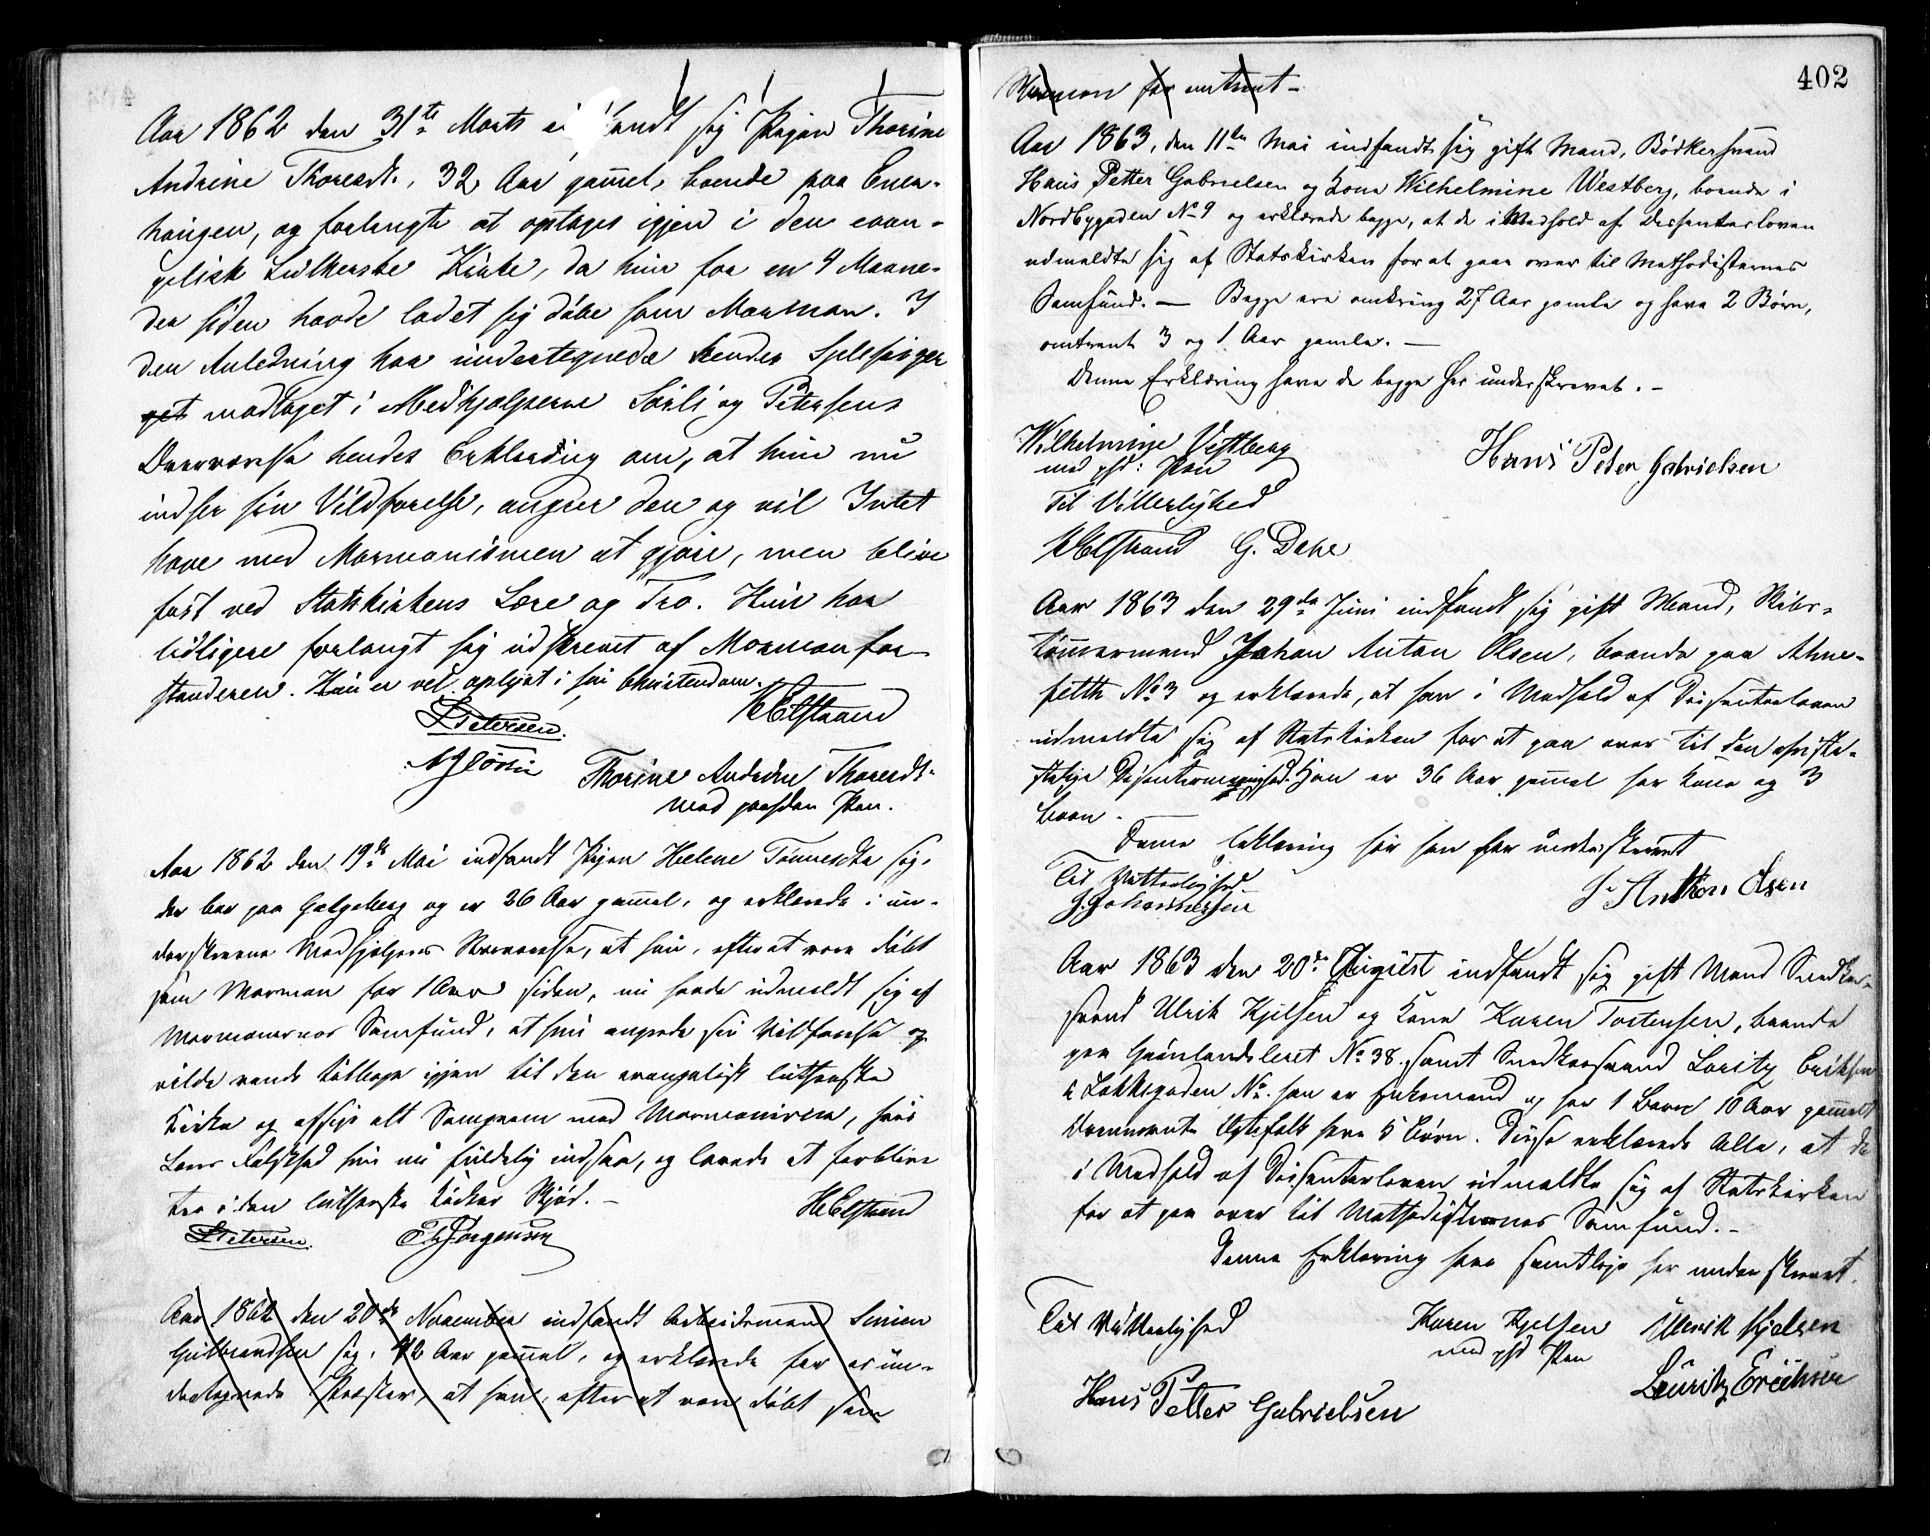 Aar 1862 den 31te Marts indfandt sig Pigen Thorine
Andrine Thoresdt., 32 Aar gammel, boende paa Ener-
haugen, og forlangte at optages igjen i den evan-
gelisk Lutherske Kirke, da hun for en 4 Maane-
der siden havde ladet sig døbe som Mormon. I
den Anledning har undertegnede hendes Sjelesørger
modtaget i Medhjælperne Sørli og Petersens
Overværelse hendes Erklæring om, at hun nu
indser sin Vildfarelse, angrer den og vil Intet
have med Mormonismen at gjøre, men blive
fast ved Statskirkens Lære og Tro. Hun har
tidligere forlangt sig udskrevet af Mormonfor-
standeren. Hun er vel oplyst i sin Christendom.
L Petersen. H Elstrand
Thorine Andrine Thoresdt.
med paaholden Pen.
Aar 1862 den 19de Mai indfandt Pigen Helene Tønnesdtr sig,
der bor paa Galgeberg og er 26 Aar gammel, og erklærede i un-
derskrevne Medhjelperes Nærværelse, at hun, efter at være døbt
som Mormon for 1 Aar siden, nu havde udmeldt sig af
Mormonernes Samfund, at hun angrede sin Vildfarelse og
vilde vende tilbage igjen til den evangelisk lutherske
Kirke og afsige alt Samqvem med Mormonerne, hvis
Læres Falskhed hun nu fuldelig indsaa, og lovede at forblive
tro i den lutherske Kirkes Skjød. –
L Petersen. E. Jørgensen H Elstrand
Aar 1862 den 20de November indfandt Arbeidsmand Simen
Gulbrandsen sig, 42 Aar gammel, og erklærede for os un-
dertegnede Præster, at han, efter at være døbt som
402
Mormon for omtrent –
Aar 1863, den 11te Mai indfandt sig gift Mand, Bødkersvend
Hans Petter Gabrielsen og Kone Wilhelmine Westberg, boende i
Nordbygaden No 9 og erklærede begge, at de i Medhold af Dissenterloven
udmeldte sig af Statskirken for at gaae over til Methodisternes
Samfund. — Begge ere omkring 27 Aar gamle og have 2 Børn,
omtrent 3 og 1 Aar gamle. —
Denne Erklæring have de begge her underskrevet. –
Wilhelmine Vestberg Hans Peter Gabrielsen
med phd: Pen
Til Vitterlighed
H Elstrand G. Dehe
Aar 1863 den 29de Juni indfandt sig gift Mand, Skibs-
tømmermand Johan Anton Olsen, boende paa
No 3 og erklærede, at han i Medhold af Dissenterloven
udmeldte sig af Statskirken for at gaa over til den christe-
lige Dissentermenighed. Han er 36 Aar gammel har Kone og 3
Børn.
Denne Erklæring har han her underskrevet
Til Vitterlighed
J. Johannessen J. Anthon Olsen
Aar 1863 den 20de August indfandt sig gift Mand Snedker-
svend Ulrik Kjelsen og Kone Karen Torstensen, boende
paa Grønlandsleret No 38. samt Snedkersvend Loritz Eriksen
i Lakkegaden No. han er Enkemand og har 1 Barn 10 Aar gammelt
Førnævnte Ægtefolk have 5 Børn. Disse erklærede Alle, at de
i Medhold af Dissenterloven udmeldte sig af Statskirken
for at gaa over til Methodisternes Samfund. –
Denne Erklæring have samtlige her underskrevet.
Til Vitterlighed Karen Kjelsen Ullerik Kjelsen
med phd Pen
Hans Petter Gabrielsen Louritz Erichsen